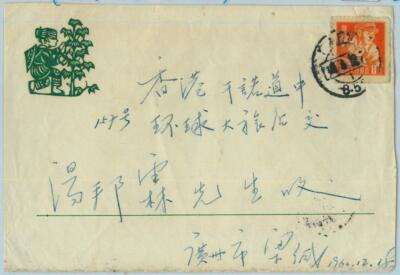 香港干諾道中
157号环球大旅店交
湯邦霖先生收
廣州市梁
1960.12.18
8
8-5